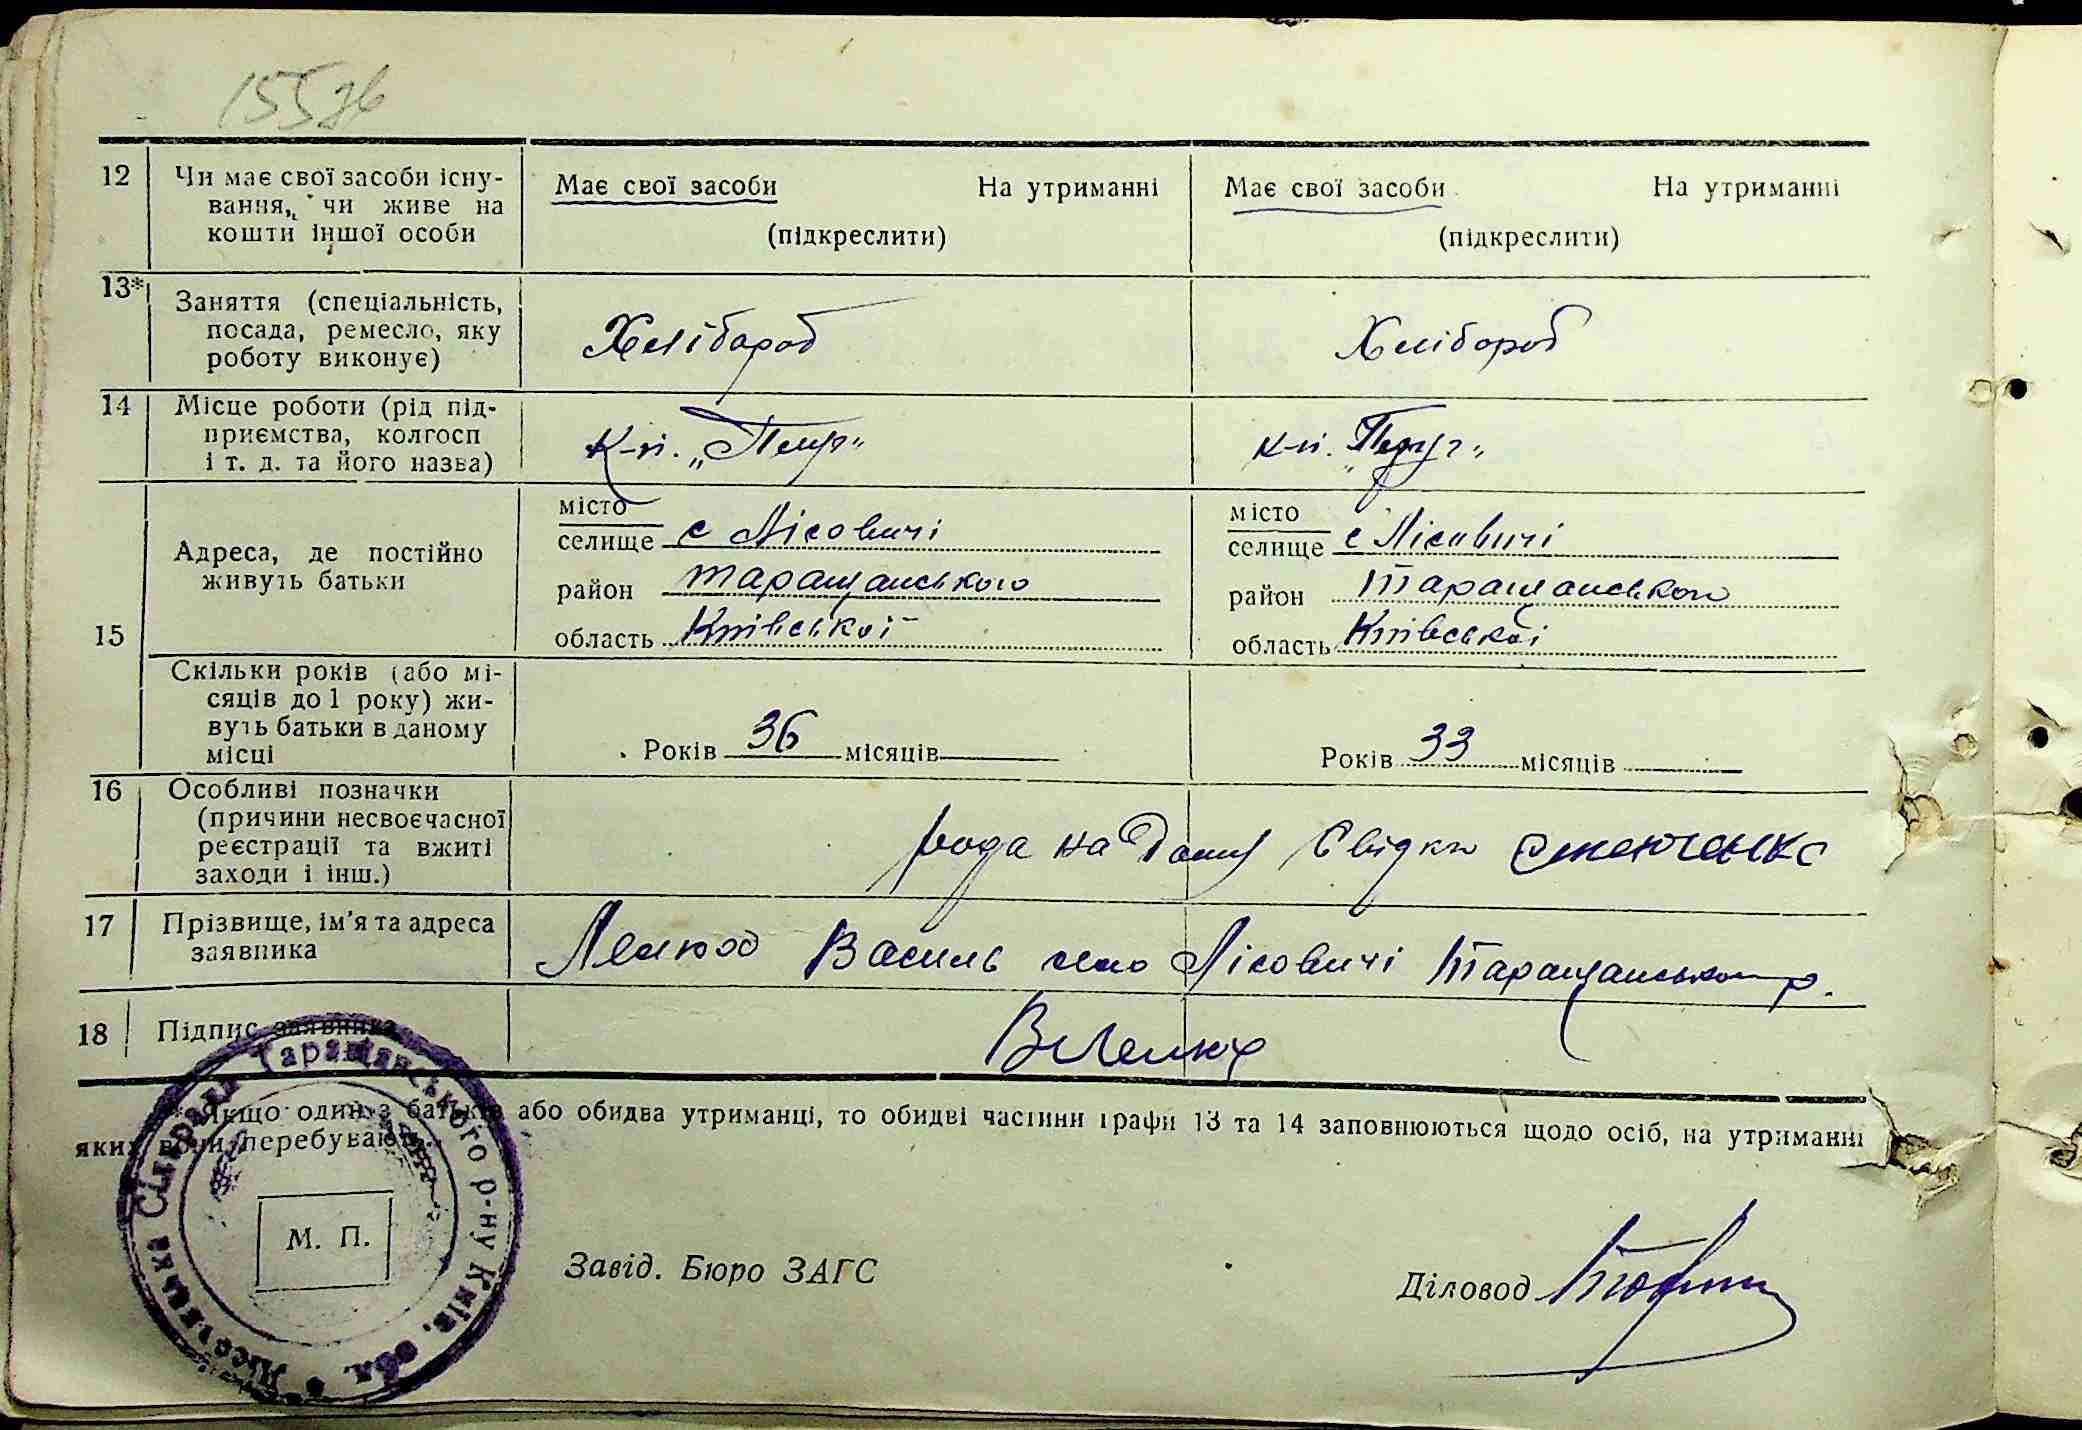 155зв
12 Чи має свої засоби існу-
вання, чи живе на
кошти іншої особи
Має свої засоби На утриманні
(підкреслити)
Має свої засоби На утриманні
(підкреслити)
13* Заняття (спеціальність,
посада, ремесло, яку
роботу виконує)
Хлібороб
Хлібороб
14 Місце роботи (рід під-
приємства, колгосп
і т. д. та його назва)
к-п.
к-п.
15 Адреса, де постійно
живуть батьки
місто
селище с Лісовичі
район таращанського
область Київської
місто
селище с Лісовичі
район Таращанського
область Київської
Скільки років (або мі-
сяців до 1 року) жи-
вуть батьки в даному
місці
Років 36 місяців
Років 33 місяців
16 Особливі позначки
(причини несвоєчасної
реєстрації та вжиті
заходи і інш.)
на дому Свідки
17 Прізвище, ім'я та адреса
заявника
Василь село Лісовичі Таращанського р.
18 Підпис заявника
* Якщо один з батьків або обидва утриманці, то обидві частини графи 13 та 14 заповнюються щодо осіб, на утриманні
яких вони перебувають.
Сільрада Таращанського р-ну Київ. обл.
М. П.
Завід. Бюро ЗАГС
Діловод